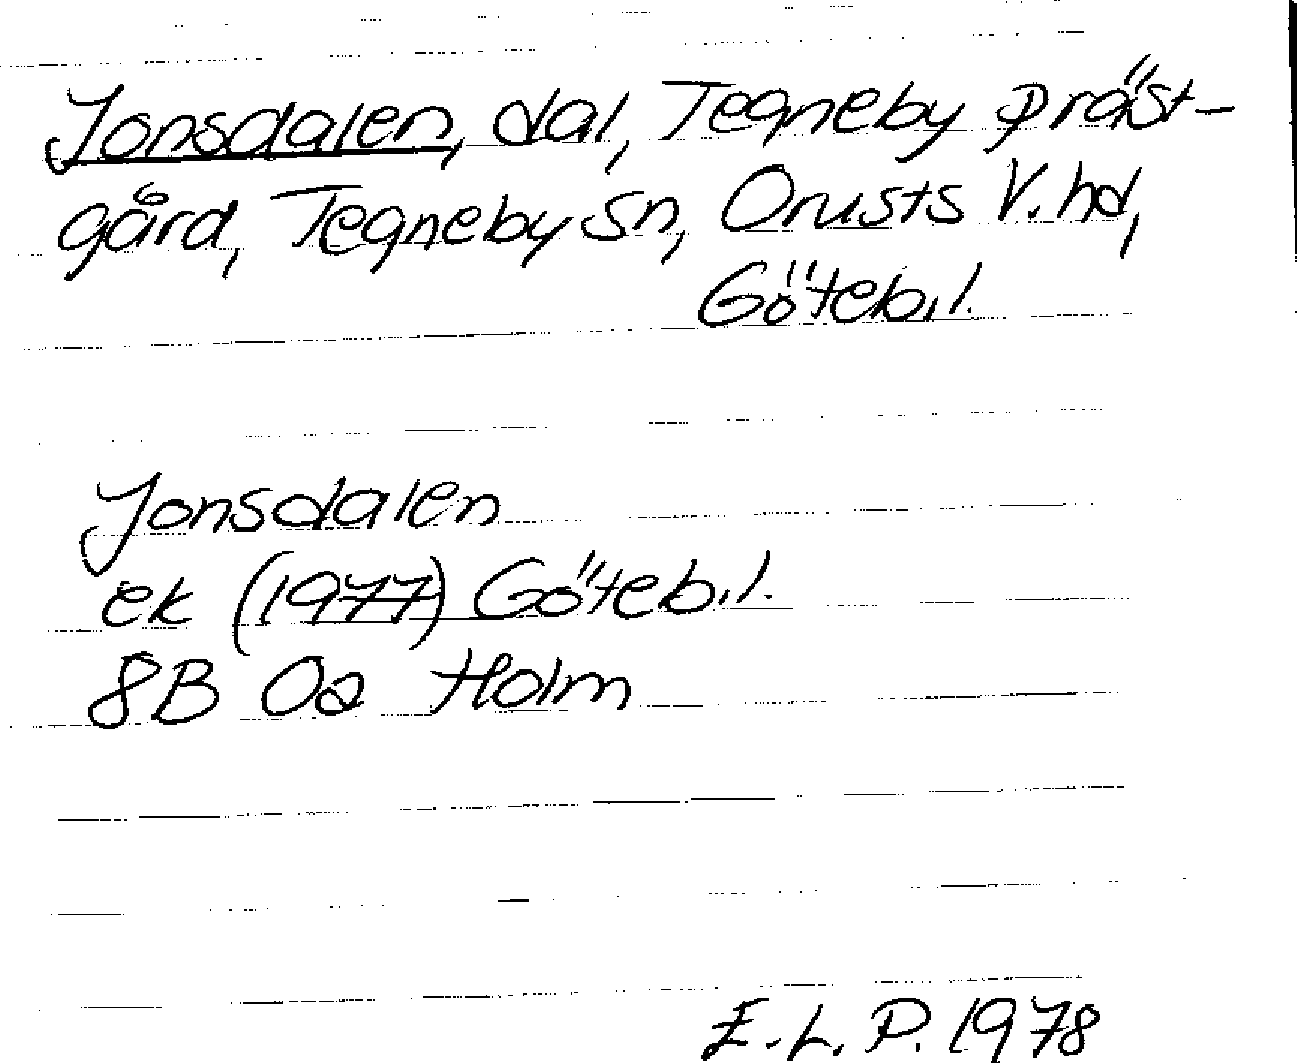 Jonsdalen, dal, Tegneby präst-
gård, Tegneby sn, Orusts V. hd,
Göteb. l.
Jonsdalen
ek (1977) Göteb. l.
8B 0a Holm
E. L. P. 1978